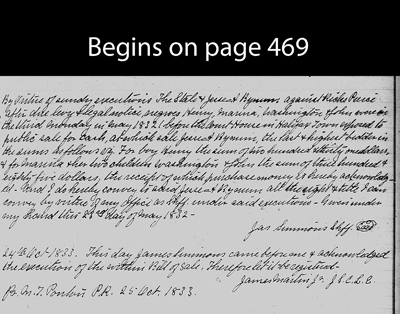 Begins on page 469
By Virtue of sundry executions The State & Jesse A Bynum against Hicks Pierce
after due levy & legal notice, negroes Henry, Marina, Washington & John were on
the third Monday in May 1832 before the Court House in Halifax Town exposed to
public sale for Cash, at which sale Jesse A Bynum, the last & highest bidder in
the sums as follows vz. For boy Henry the sum of two hundred & thirty one dollars,
& for Marina & her two children Washington & John the sum of three hundred &
sixty five dollars, the receipt of which purchase money is hereby acknowledg-
ed. And I do hereby convey to said Jesse A Bynum all the right & title I can
convey by virtue of my Office as Shff. under said executions - Given under
my hand this 22nd day of May 1832 -
Jas Simmons Shff. Seal
24th Oct 1833. This day James Simmons came before me & acknowledged
the execution of the within Bill of Sale. Therefore let it be registered -
James Martin Jr. J.S.C.L.E.
Pr. M. T. Ponton P.R. 25 Oct. 1833.